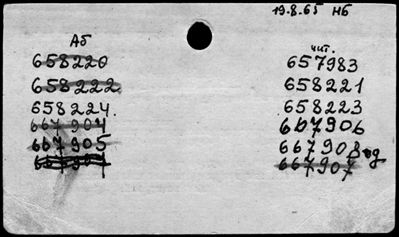 19.8.65 НБ
Аб
658220
658222
658224
667904
667905
чит.
657983
658221
658223
667906
667908
667907